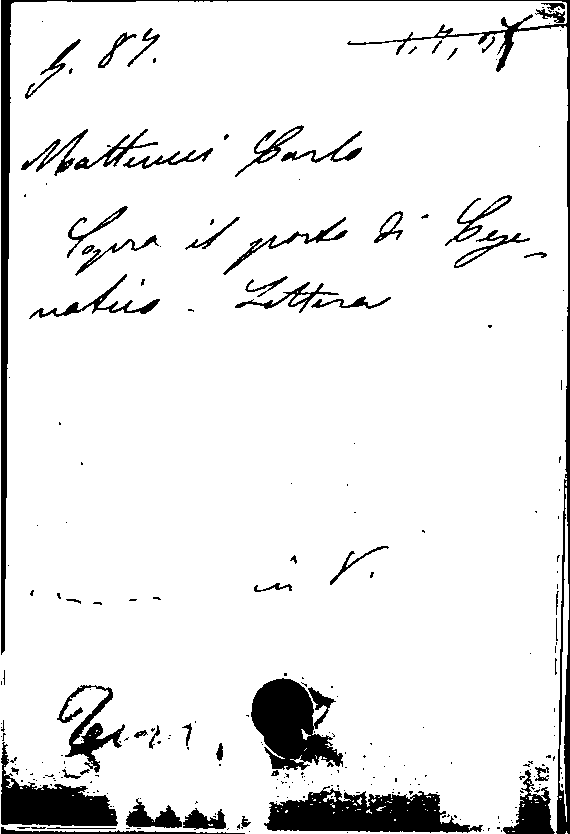 G. 87.
Matteucci Carlo
Sopra il porto di Cese_
natico - Lettera
in 8.